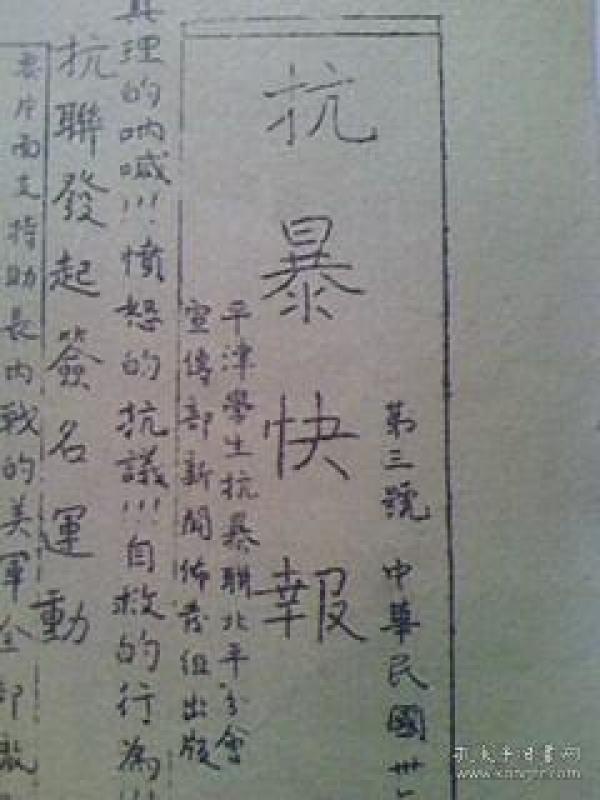 第三號 中華民國卅
抗暴快報
平津學生抗暴聯北平分會
宣傳部新聞佈發組出版
真理的吶喊!!!憤怒的抗議!!!自救的行為!!!
抗聯發起簽名運動
片面支持助長內戰的美軍全部撤